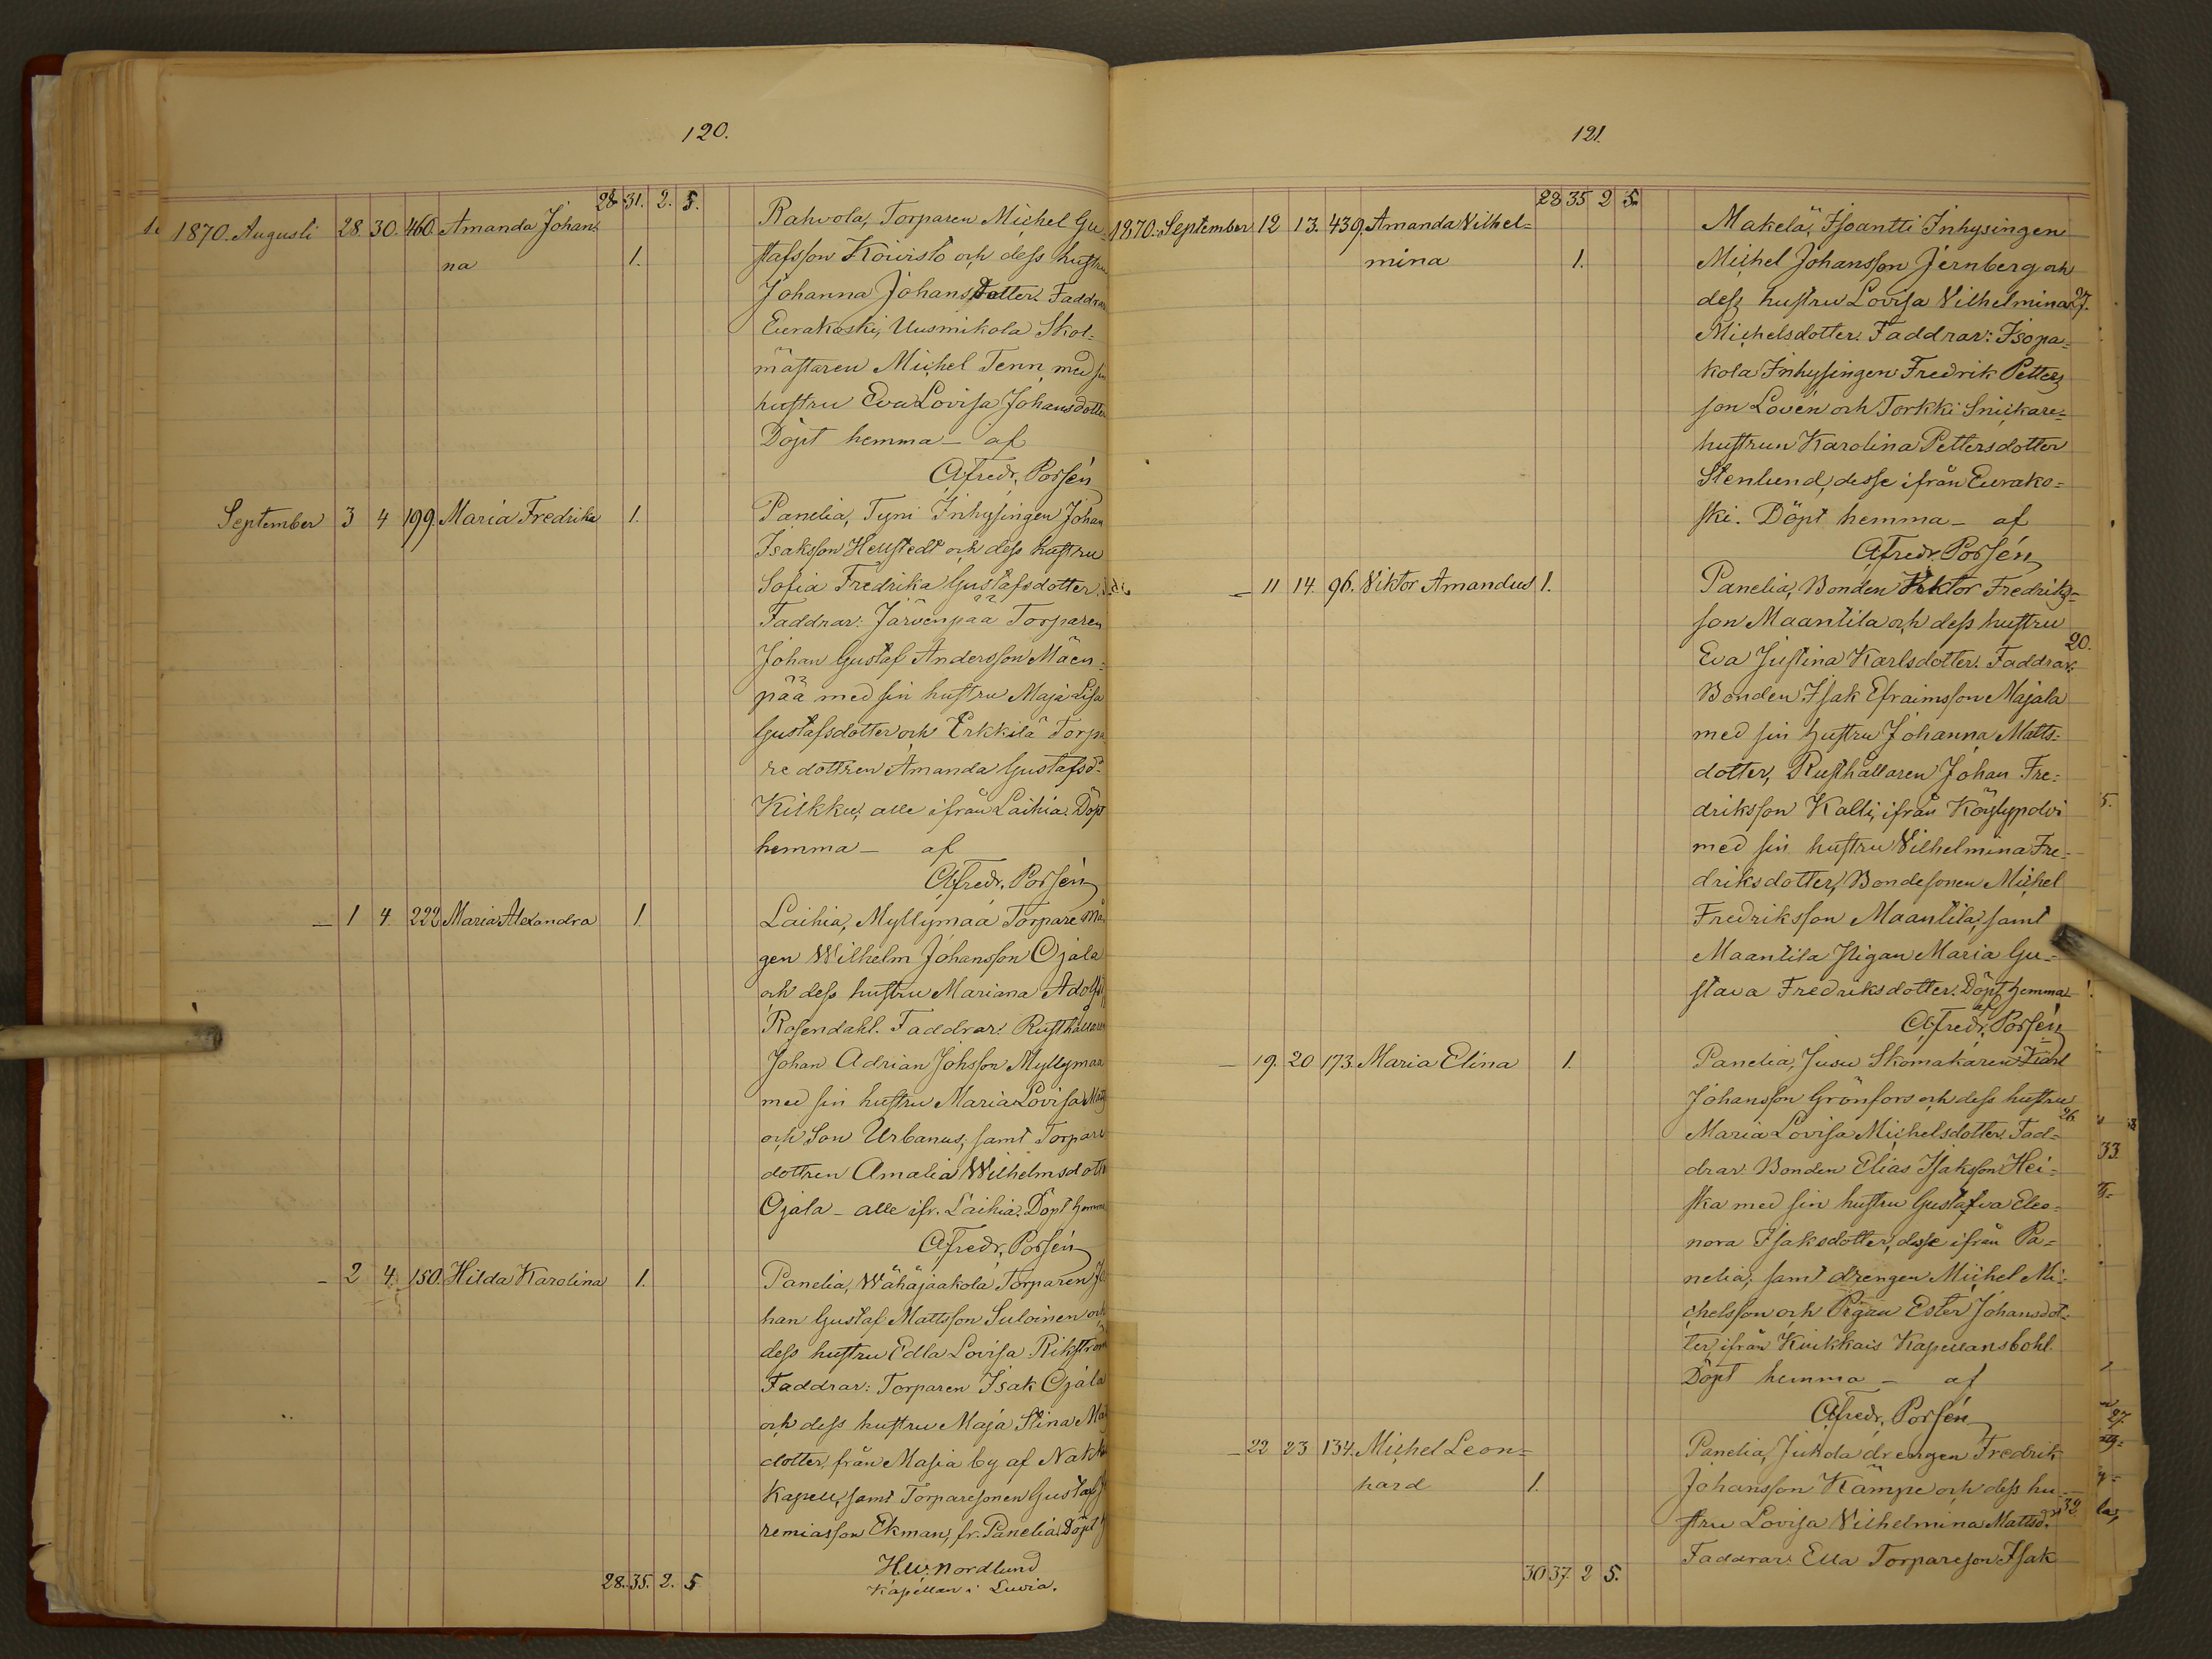 120.
28. 31. 2. 5.
1870. Augusti 28. 30. 460. Amanda Johan= Rahvola, Torparen Michel Gu=
na 1. stafsson Koivisto och dess hustru
Johanna Johansdotter. Faddrar
Eurakoski, Uusmikola Skol=
mästaren Michel Tenn med sin
hustru Eva Lovisa Johansdotter
Döpt hemma — af
Afredr. Porsén
September 3 4 199. Maria Fredrika 1. Panelia, Tyni Inhysingen Johan
Isaksson Hellstedt och dess hustru
Sofia Fredrika Gustafsdotter.
Faddrar: Järvenpää Torparen
Johan Gustaf Andersson Mäen=
pää med sin hustru Maja Lisa
Gustafsdotter och Erkkilä Torpa
re dottren Amanda Gustafsd:
Kilkku, alle ifrån Laihia. Döpt
hemma — af
Afredr. Porsén
— 1 4. 222 Maria Alexandra 1 Laihia, Myllymaa Torpare må
gen Wilhelm Johansson Ojala
och dess hustru Mariana Adolfs
Rosendahl. Faddrar: Rusthållaren
Johan Adrian Johsson Myllymaa
med sin hustru Maria Lovisa
och Son Urbanus, samt Torpare
dottren Amalia Wilhelmsdotter
Ojala — alle ifr. Laihia. Döpt hemma
Afredr. Porsén
— 2 4. 150. Hilda Karolina 1. Panelia, Wähäjaakola Torparen Jo
han Gustaf Mattsson Suloinen och
dess hustru Edla Lovisa Rikström
Faddrar: Torparen Isak Ojala
och dess hustru Maja Stina
dotter, från Masia by af
Kapell, samt Torparesonen Gustaf Je
remiasson Ekman, fr. Panelia. Döpt
H. W. Nordlund
28. 35. 2. 5 Kapellan i Luvia.
121.
28 35 2 5.
1870. September 12 13. 439. Amanda Vilhel= Makelä, Isoantti Inhysingen
mina 1. Michel Johansson Jernberg och
dess hustru Lovisa Vilhelmina 27.
Michelsdotter. Faddrar: Isopa=
kola Inhysingen Fredrik Petters
son Lovén och Torkki Snickare=
hustrun Karolina Pettersdotter
Stenlund, desse ifrån Eurako=
ski. Döpt hemma — af
Afredr. Porsén
— 11 14. 96. Viktor Amandus 1. Panelia, Bonden Viktor Fredriks=
son Maantila och dess hustru
20.
Eva Justina Karlsdotter. Faddrar:
Bonden Isak Efraimsson Majala
med sin hustru Johanna Matts=
dotter, Rusthållaren Johan Fre=
driksson Kalli, ifrån Köyly­polvi
med sin hustru Vilhelmina Fre=
driksdotter, Bondesonen Michel
Fredriksson Maantila, samt
Maantila Pigan Maria Gu=
stava Fredriksdotter. Döpt hemma
af
Afredr. Porsén
— 19. 20 173. Maria Elina 1. Panelia, Jusu Skomakaren Karl
Johansson Grönfors och dess hustru
26.
Maria Lovisa Michelsdotter. Fad=
drar: Bonden Elias Isaksson Hei=
ska med sin hustru Gustafva Eleo=
nora Isaksdotter, desse ifrån Pa=
nelia, samt drengen Michel Mi=
chelsson och Pigan Ester Johansdot=
ter, ifrån Kiukkais Kapellansbohl.
Döpt hemma — af
Afredr. Porsén
— 22 23 134. Michel Leon= Panelia, Jukola drengen Fredrik
hard 1. Johansson Kämpe och dess hu=
stru Lovisa Vilhelmina Mattsd. 32
Faddrar: Ella Torpareson Isak
30 37 2 5.